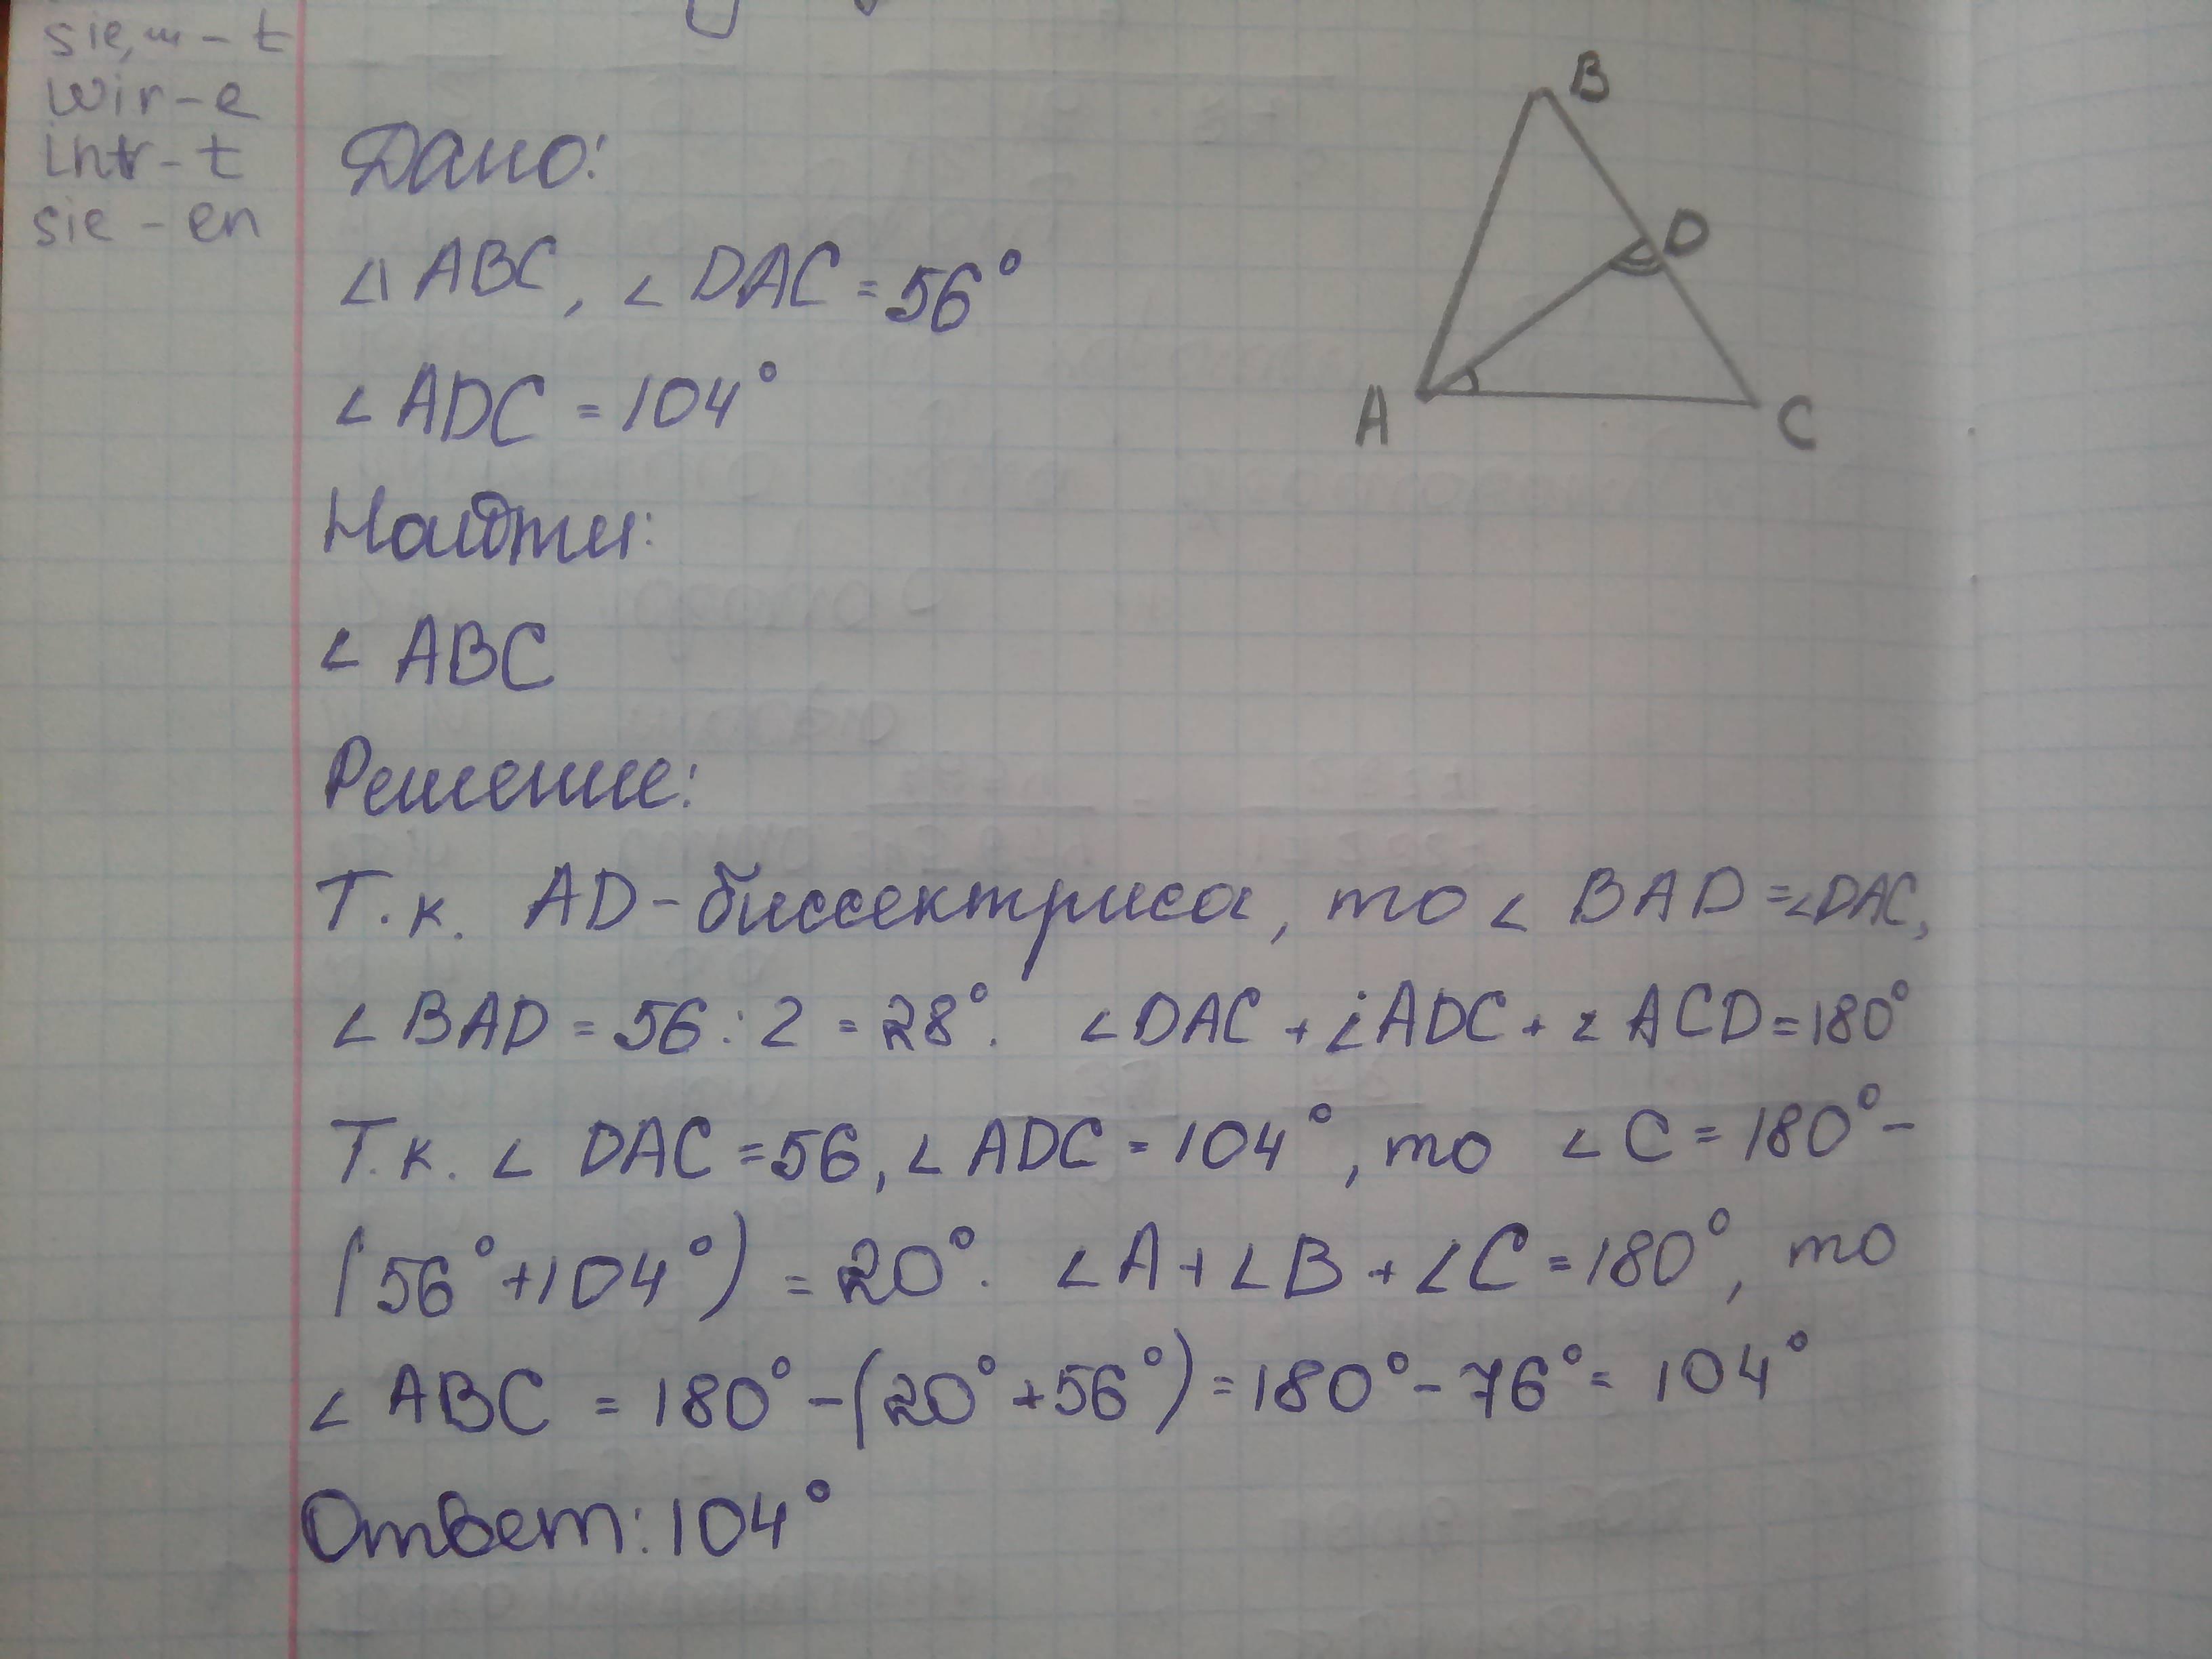 wir - e
sie - en
Дано:
B
D
A
C
△ ABC, ∠ DAC = 56°
∠ ADC = 104°
Найти:
∠ ABC
Решение:
Т.к. AD - биссектриса, то ∠ BAD = ∠DAC,
∠ BAD = 56 : 2 = 28°. ∠DAC + ∠ADC + ∠ACD = 180°
Т.к. ∠ DAC = 56, ∠ ADC = 104°, то ∠ C = 180° -
(56° + 104°) = 20°. ∠A + ∠B + ∠C = 180°, то
∠ ABC = 180° - (20° + 56°) = 180° - 76° = 104°
Ответ: 104°